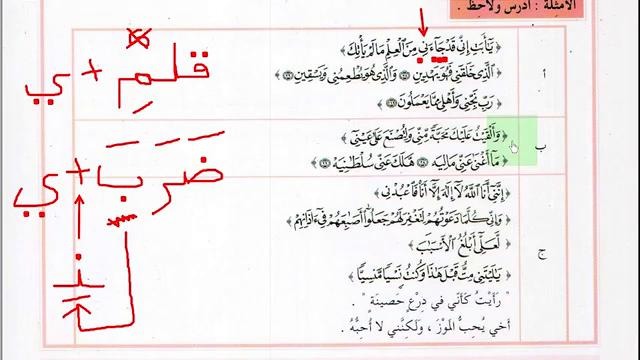 الأمثلة : ادرس ولاحظ .
أ
﴿ يَٰٓأَبَتِ إِنِّي قَدْ جَآءَنِي مِنَ ٱلْعِلْمِ مَا لَمْ يَأْتِكَ ﴾
﴿ ٱلَّذِي خَلَقَنِي فَهُوَ يَهْدِينِ ۝ وَٱلَّذِي هُوَ يُطْعِمُنِي وَيَسْقِينِ ۝ ﴾
﴿ رَبِّ نَجِّنِي وَأَهْلِي مِمَّا يَعْمَلُونَ ۝ ﴾
ب
﴿ وَأَلْقَيْتُ عَلَيْكَ مَحَبَّةً مِّنِّي وَلِتُصْنَعَ عَلَىٰ عَيْنِيٓ ﴾
﴿ مَآ أَغْنَىٰ عَنِّي مَالِيَهْ ۝ هَلَكَ عَنِّي سُلْطَٰنِيَهْ ۝ ﴾
ج
﴿ إِنَّنِيٓ أَنَا ٱللَّهُ لَآ إِلَٰهَ إِلَّآ أَنَا۠ فَٱعْبُدْنِي ﴾
﴿ وَإِنِّي كُلَّمَا دَعَوْتُهُمْ لِتَغْفِرَ لَهُمْ جَعَلُوٓا۟ أَصَٰبِعَهُمْ فِيٓ ءَاذَانِهِمْ ﴾
﴿ لَّعَلِّيٓ أَبْلُغُ ٱلْأَسْبَٰبَ ﴾
﴿ يَٰلَيْتَنِي مِتُّ قَبْلَ هَٰذَا وَكُنتُ نَسْيًا مَّنسِيًّا ﴾
" رَأَيْتُ كَأَنِّي في دِرْعٍ حَصينَةٍ " .
أخي يُحِبُّ المَوْزَ ، وَلكِنَّني لا أُحِبُّهُ .
قلمِ + ي
ضَرَبَ + ي
نِ